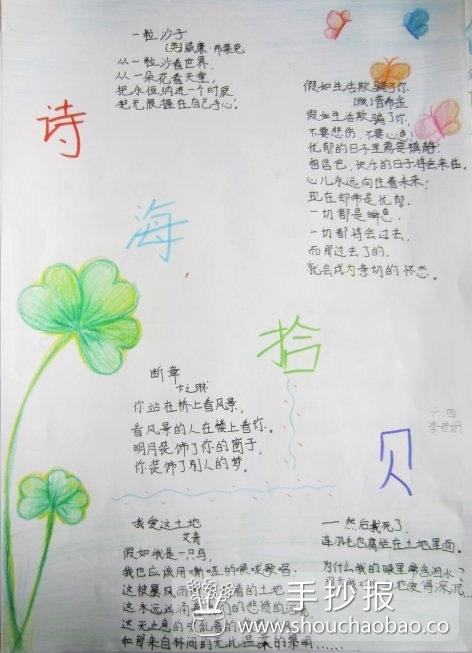 一粒沙子
[英]威廉·布莱克
从一粒沙看世界,
从一朵花看天堂,
把永恒纳进一个时辰
把无限握在自己手心。
诗
海
拾
贝
假如生活欺骗了你
(俄)普希金
假如生活欺骗了你,
不要悲伤,不要心急!
忧郁的日子里需要镇静:
相信吧,快乐的日子将会来临。
心儿永远向往着未来;
现在却常是忧郁.
一切都是瞬息.
一切都将会过去,
而那过去了的,
就会成为亲切的怀恋.
断章
卞之琳
你站在桥上看风景,
看风景的人在楼上看你。
明月装饰了你的窗子,
你装饰了别人的梦。
六.四
我爱这土地
艾青
假如我是一只鸟,
我也应该用嘶哑的喉咙歌唱:
这被暴风雨
着的土地
这永远汹涌
们的悲愤的
这无止息
和那来自林间的无比温柔的黎明……
——然后我死了,
连羽毛也腐烂在土地里面.
为什么我的眼里常含泪水?
爱得深沉……
手抄报
www.shouchaobao.co